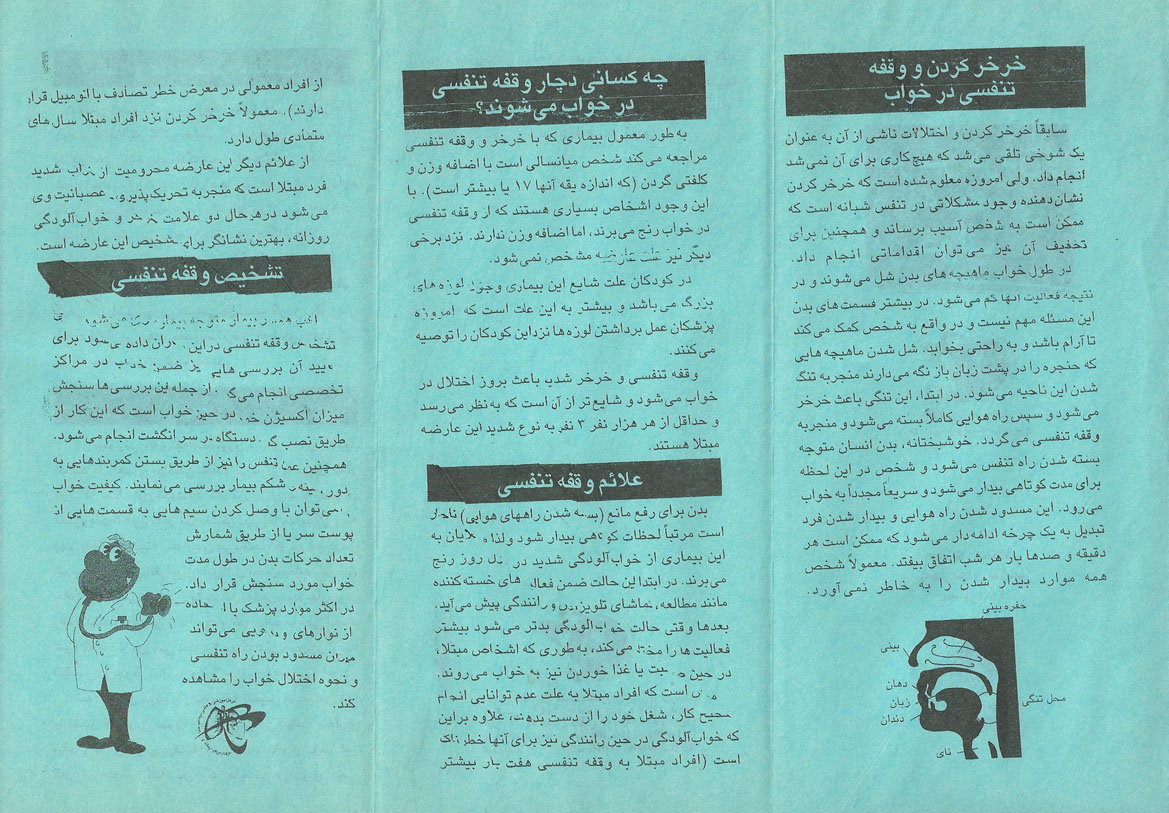 خرخر کردن و وقفه
تنفسی در خواب
سابقاً خرخر کردن و اختلالات ناشی از آن به عنوان
یک شوخی تلقی می‌شد که هیچ کاری برای آن نمی‌شد
انجام داد. ولی امروزه معلوم شده است که خرخر کردن
نشان‌دهنده وجود مشکلاتی در تنفس شبانه است که
ممکن است به شخص آسیب برساند و همچنین برای
تخفیف آن نیز می‌توان اقداماتی انجام داد.
در طول خواب ماهیچه‌های بدن شل می‌شوند و در
نتیجه فعالیت آنها کم می‌شود. در بیشتر قسمت‌های بدن
این مسئله مهم نیست و در واقع به شخص کمک می‌کند
تا آرام باشد و به راحتی بخوابد. شل شدن ماهیچه‌هایی
که حنجره را در پشت زبان باز نگه می‌دارند منجر به تنگ
شدن این ناحیه می‌شود. در ابتدا، این تنگی باعث خرخر
می‌شود و سپس راه هوایی کاملاً بسته می‌شود و منجر به
وقفه تنفسی می‌گردد. خوشبختانه، بدن انسان متوجه
بسته شدن راه تنفس می‌شود و شخص در این لحظه
برای مدت کوتاهی بیدار می‌شود و سریعاً مجدداً به خواب
می‌رود. این مسدود شدن راه هوایی و بیدار شدن فرد
تبدیل به یک چرخه ادامه‌دار می‌شود که ممکن است هر
دقیقه و صدها بار هر شب اتفاق بیفتد. معمولاً شخص
همه موارد بیدار شدن را به خاطر نمی‌آورد.
حفره بینی
بینی
دهان
زبان
دندان
محل تنگی
نای
چه کسانی دچار وقفه تنفسی
در خواب می‌شوند؟
به طور معمول بیماری که با خرخر و وقفه تنفسی
مراجعه می‌کند شخص میانسالی است با اضافه وزن و
کلفتی گردن (که اندازه یقه آنها ۱۷ یا بیشتر است). با
این وجود اشخاص بسیاری هستند که از وقفه تنفسی
در خواب رنج می‌برند، اما اضافه وزن ندارند. نزد برخی
دیگر نیز علت عارضه مشخص نمی‌شود.
در کودکان علت شایع این بیماری وجود لوزه‌های
بزرگ می‌باشد و بیشتر به این علت است که امروزه
پزشکان عمل برداشتن لوزه‌ها نزد این کودکان را توصیه
می‌کنند.
وقفه تنفسی و خرخر شدید باعث بروز اختلال در
خواب می‌شود و شایع‌تر از آن است که به نظر می‌رسد
و حداقل از هر هزار نفر ۳ نفر به نوع شدید این عارضه
مبتلا هستند.
علائم وقفه تنفسی
بدن برای رفع مانع (بسته شدن راههای هوایی) ناچار
است مرتباً لحظات کوتاهی بیدار شود ولذا مبتلایان به
این بیماری از خواب‌آلودگی شدید در طول روز رنج
می‌برند. در ابتدا این حالت ضمن فعالیت های خسته‌کننده
مانند مطالعه، تماشای تلویزیون و رانندگی پیش می‌آید.
بعدها وقتی حالت خواب‌آلودگی بدتر می‌شود بیشتر
فعالیت‌ها را مختل می‌کند، به‌طوری که اشخاص مبتلا،
در حین صحبت یا غذا خوردن نیز به خواب می‌روند.
است که افراد مبتلا به علت عدم توانایی انجام
صحیح کار، شغل خود را از دست بدهند، علاوه براین
که خواب‌آلودگی در حین رانندگی نیز برای آنها خطرناک
است (افراد مبتلا به وقفه تنفسی هفت بار بیشتر
از افراد معمولی در معرض خطر تصادف با اتومبیل قرار
دارند). معمولاً خرخر کردن نزد افراد مبتلا سال‌های
متمادی طول دارد.
از علائم دیگر این عارضه محرومیت از خواب شدید
فرد مبتلا است که منجر به تحریک‌پذیری و عصبانیت وی
می‌شود در هر حال دو علامت خرخر و خواب‌آلودگی
روزانه، بهترین نشانگر برای تشخیص این عارضه است.
تشخیص وقفه تنفسی
اغلب همسر بیمار متوجه بیماری وی می‌شود
تشخیص وقفه تنفسی در این داده می‌شود برای
تأیید آن بررسی هایی نیز ضمن خواب در مراکز
تخصصی انجام می‌گیرد. از جمله این بررسی‌ها سنجش
میزان اکسیژن خون در حین خواب است که این کار از
طریق نصب یک دستگاه بر سر انگشت انجام می‌شود.
همچنین عمل تنفس را نیز از طریق بستن کمربندهایی به
دور سینه و شکم بیمار بررسی می‌نمایند. کیفیت خواب
را می‌توان با وصل کردن سیم هایی به قسمت هایی از
پوست سر یا از طریق شمارش
تعداد حرکات بدن در طول مدت
خواب مورد سنجش قرار داد.
در اکثر موارد پزشک با استفاده
از نوارهای ویدیویی می‌تواند
میزان مسدود بودن راه تنفسی
و نحوه اختلال خواب را مشاهده
کند.